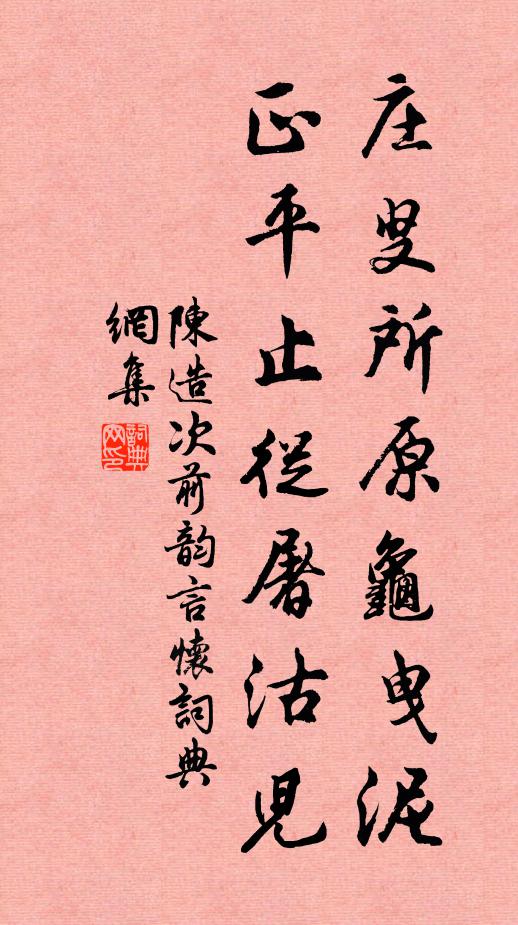 庄叟所原龜曳泥
正平止從屠沽兒
陳造次前韵言懷詞典
網集
詞典网印